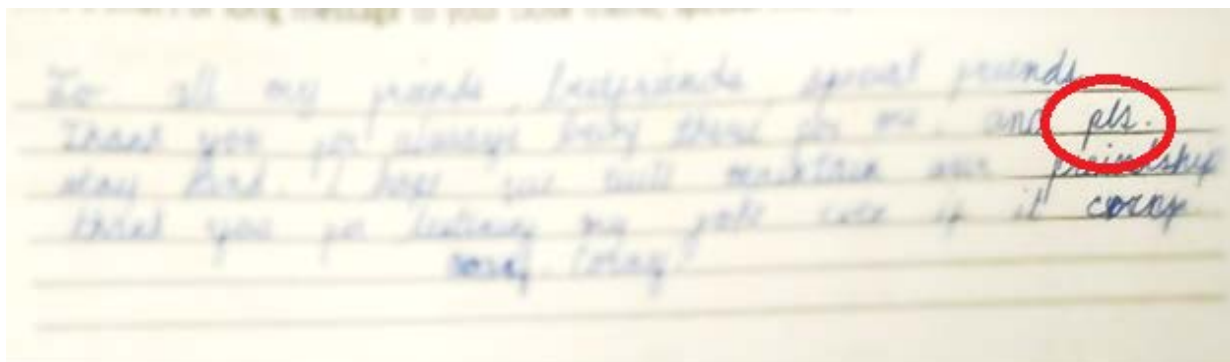 To all my friends, bestfriends, special friends
Thank you for always being there for me, and pls.
stay kind. I hope we will maintain our friendship
thank you for my joke even if it corny
corny